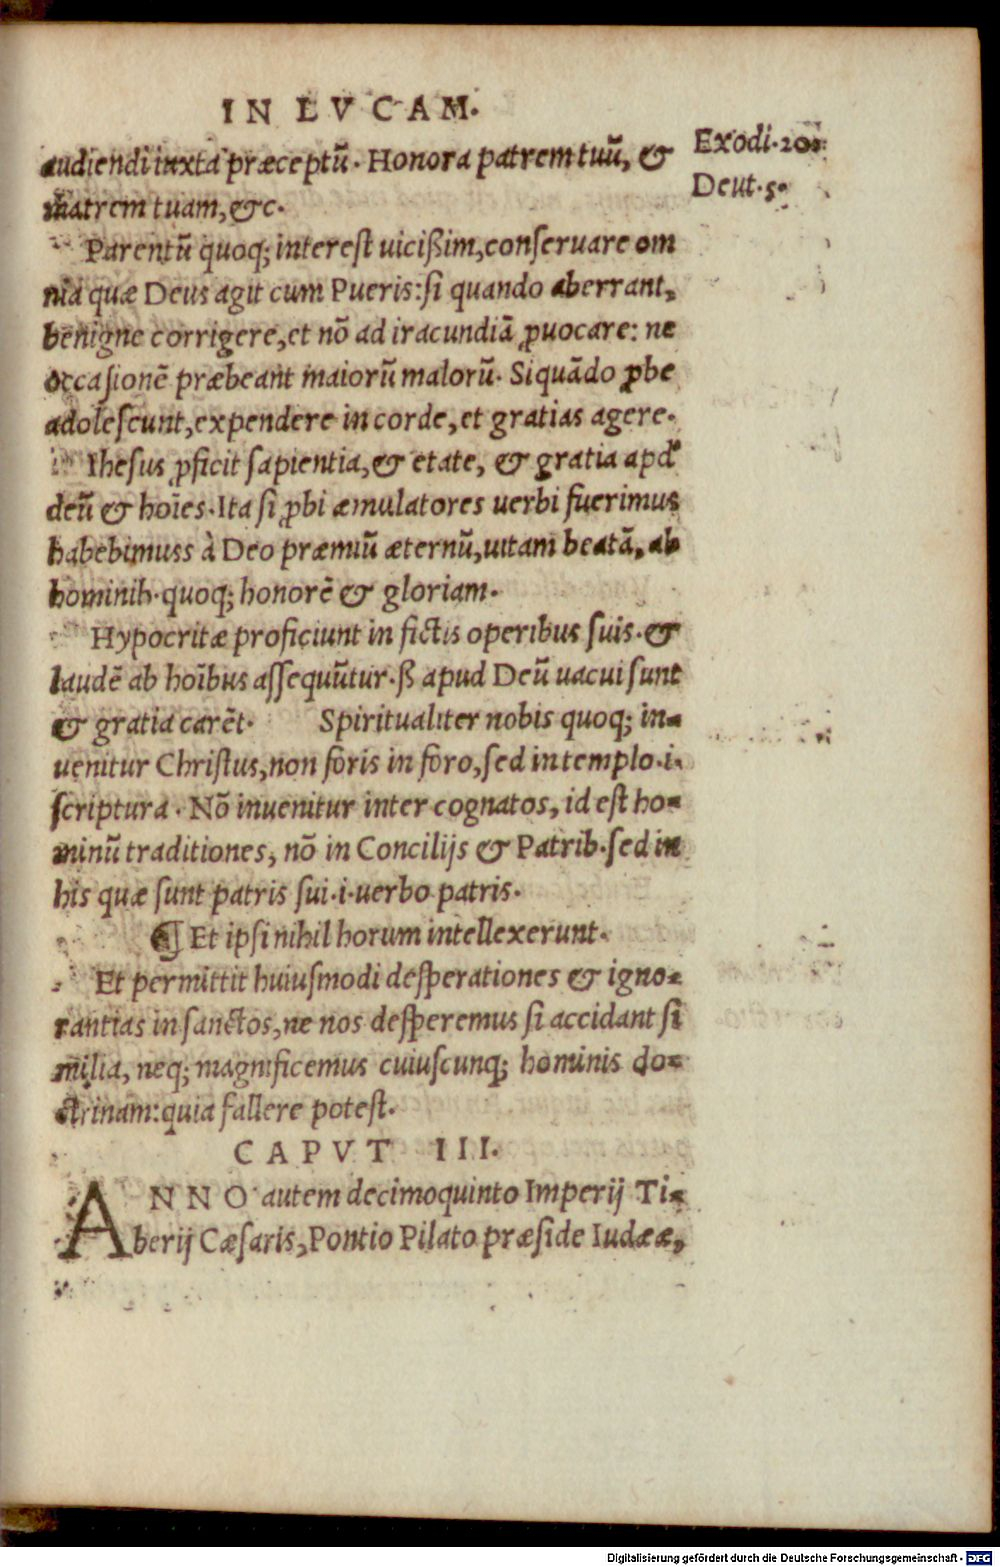 IN LVCAM.
audiendi iuxta præceptũ. Honora patrem tuũ, &
matrem tuam, &c.
Exodi.20.
Deut.5.
Parentũ quoq; interest uicißim, conseruare om
nia quæ Deus agit cum Pueris: si quando aberrant,
benigne corrigere, et nõ ad iracundiã ꝓuocare: ne
occasionẽ præbeant maiorũ malorũ. Siquãdo ꝓbe
adolescunt, expendere in corde, et gratias agere.
Ihesus ꝓficit sapientia, & etate, & gratia apd'
deũ & hoĩes. Ita si ꝓbi æmulatores uerbi fuerimus
habebimuss à Deo præmiũ æternũ, uitam beatã, ab
hominib. quoq; honorẽ & gloriam.
Hypocritæ proficiunt in fictis operibus suis. &
laudẽ ab hoĩbus assequũtur. ß apud Deũ uacui sunt
& gratia carẽt. Spiritualiter nobis quoq; in=
uenitur Christus, non foris in foro, sed in templo .i.
scriptura. Nõ inuenitur inter cognatos, id est ho=
minũ traditiones, nõ in Concilijs & Patrib. sed in
his quæ sunt patris sui .i. uerbo patris.
¶ Et ipsi nihil horum intellexerunt.
Et permittit huiusmodi desperationes & igno=
rantias in sanctos, ne nos desperemus si accidant si
milia, neq; magnificemus cuiuscunq; hominis do=
ctrinam: quia fallere potest.
CAPVT III.
ANNO autem decimoquinto Imperij Ti=
berij Cæsaris, Pontio Pilato præside Iudææ,
Digitalisierung gefördert durch die Deutsche Forschungsgemeinschaft - DFG